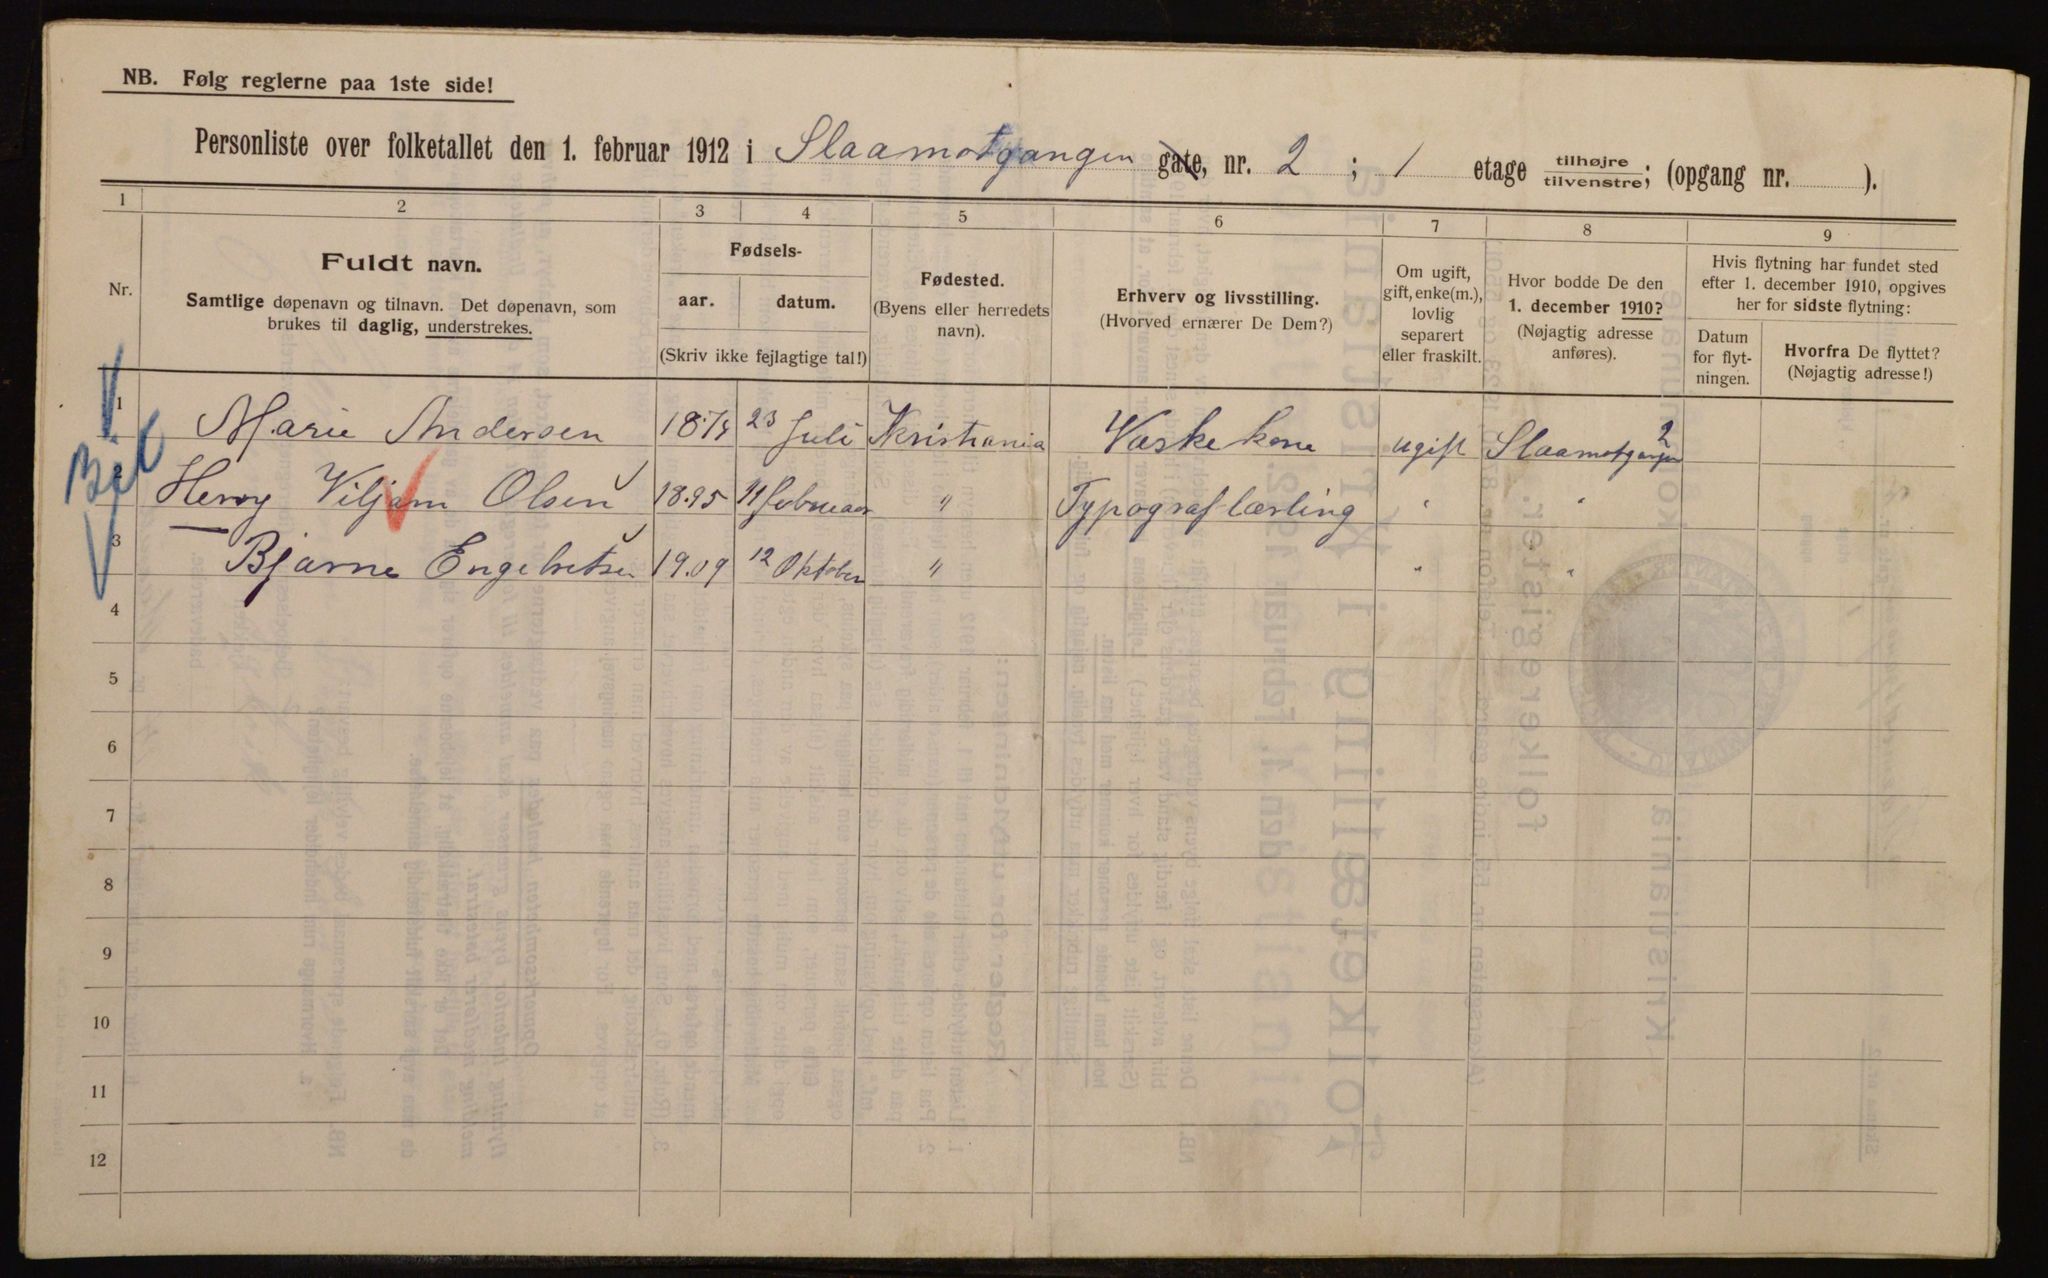 NB. Følg reglerne paa 1ste side!
Personliste over folketallet den 1. februar 1912 i Slaamotgangen gate, nr. 2 ; 1 etage tilhøjre tilvenstre; (opgang nr. ).
1 2 3 4 5 6 7 8 9
Nr.
Fuldt navn.
Samtlige døpenavn og tilnavn. Det døpenavn, som
brukes til daglig, understrekes.
Fødsels-
aar. datum.
(Skriv ikke fejlagtige tal!)
Fødested.
(Byens eller herredets
navn).
Erhverv og livsstilling.
(Hvorved ernærer De Dem?)
Om ugift,
gift, enke(m.),
lovlig
separert
eller fraskilt.
Hvor bodde De den
1. december 1910?
(Nøjagtig adresse
anføres).
Hvis flytning har fundet sted
efter 1. december 1910, opgives
her for sidste flytning:
Datum
for flyt-
ningen.
Hvorfra De flyttet?
(Nøjagtig adresse!)
1 Marie Andersen 23 Juli Kristiania Vaskekone ugift Slaamotgangen 2
Viljam Olsen 1895 11 februar " Typograflærling " "
3 Bjarne Engebretsen 1909 12 Oktober " " "
4
5
6
7
8
9
10
11
12